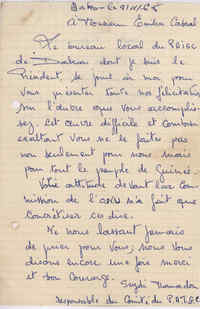 Dakar le
A Monsieur Cabral
Le bureau local du PAIGC
de Dakar dont je suis le
Président, se joint à moi pour
vous présenter toute nos félicitations
sur l'œuvre que vous accomplis-
sez. Cet œuvre difficile et combien
exaltant vous ne le faite pas
non seulement pour nous mais
pour tout le peuple de Guinée.
Votre attitude devant la Com-
mission de l'ONU n'a fait que
concrétiser ces dire.
Ne nous lassant jamais
de prier pour vous; nous vous
disons encore une fois merci
et bon courage.
responsable du Comité du P.A.I.G.C